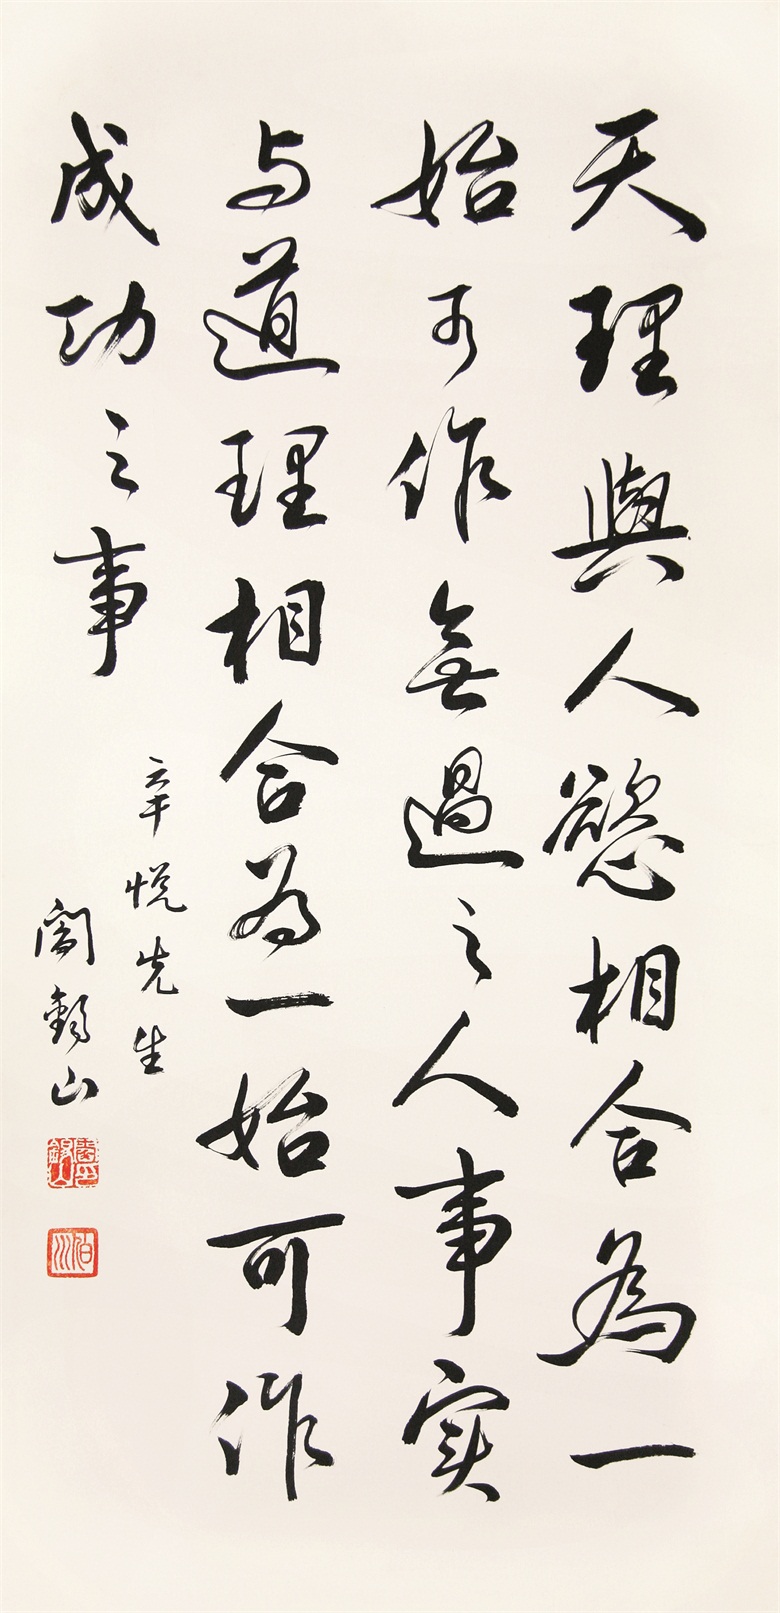 天理與人慾相合為一
始可作無過之人事实
与道理相合为一始可作
成功之事
辛悦先生
閻錫山
閻錫山印
伯川